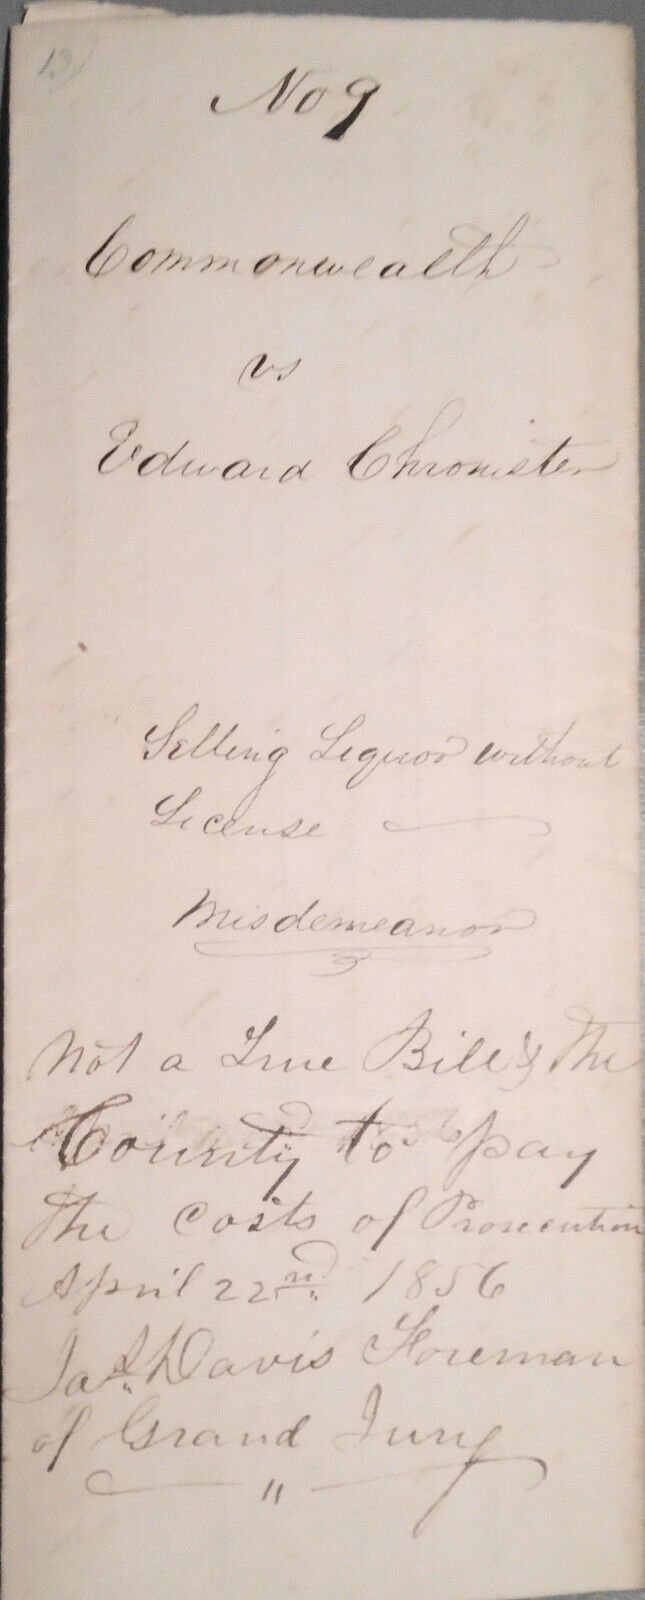 12)
No 9
Commonwealth
vs
Edward Chronister
Selling Liquor without
License
Misdemeanor
Not a True Bill & the
County to pay
the costs of Prosecution
April 22nd 1856
Jas Davis Foreman
of Grand Jury
"